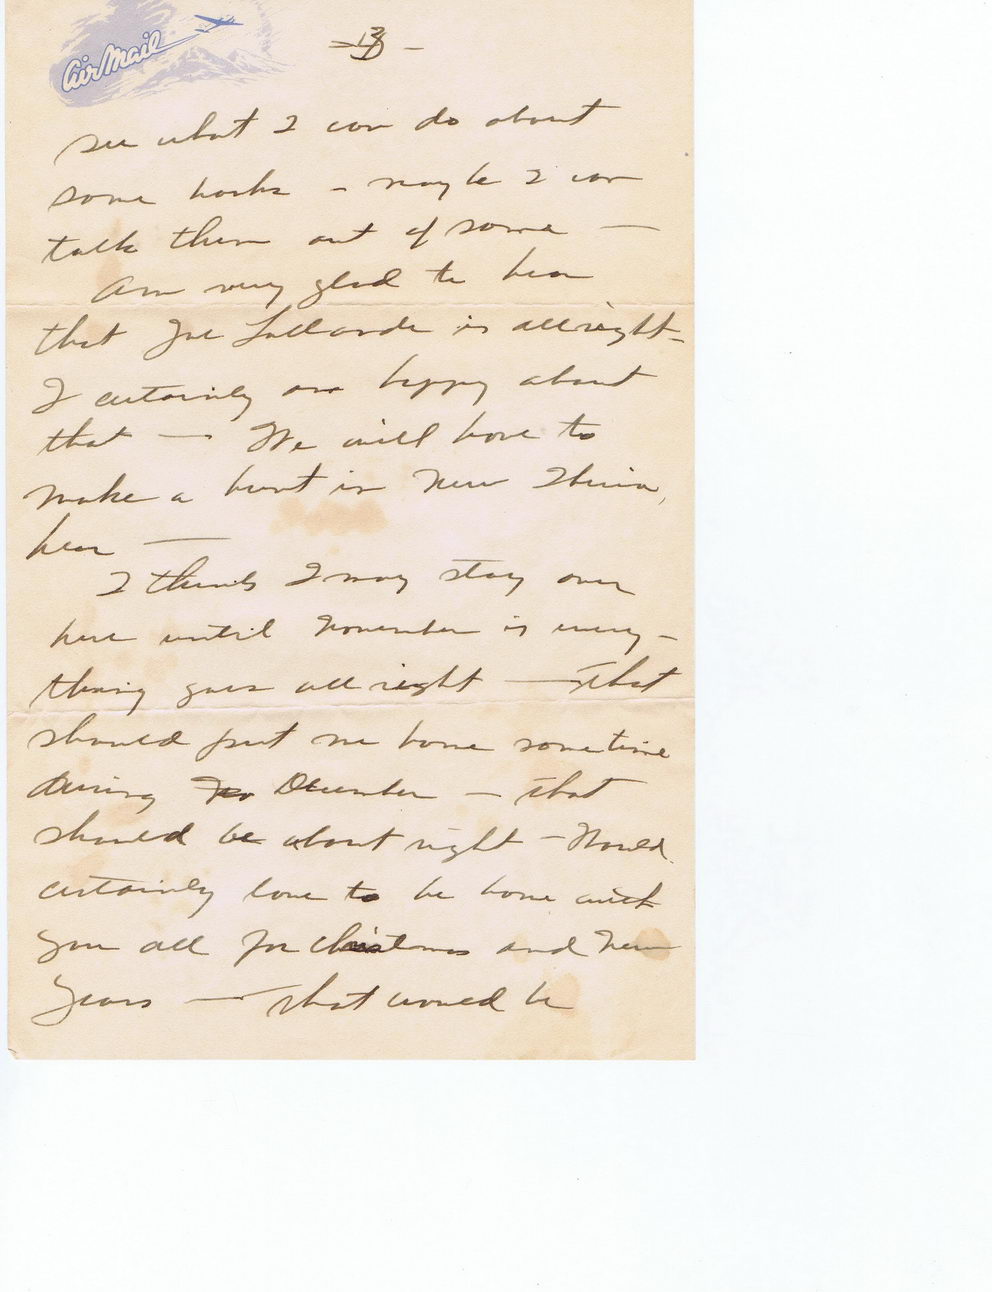 Air Mail
- 3 -
see what I can do about
some books - maybe I can
talk them out of some —
Am very glad to hear
that Joe is allright -
I certainly am happy about
that — We will have to
make a hunt in New Iberia,
hear —
I think I may stay over
here until November is every-
thing goes all right — That
should put me home sometime
during December - that
should be about right - Would
certainly love to be home with
you all for Christmas and New
Years — that would be